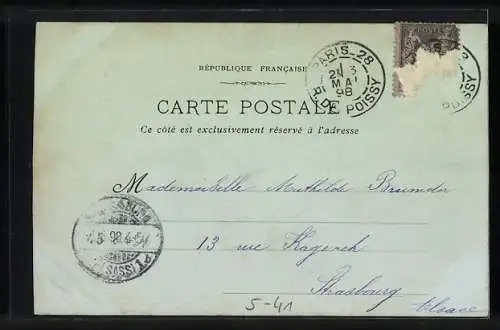 RÉPUBLIQUE FRANÇAISE
CARTE POSTALE
Ce côté est exclusivement réservé à l'adresse
PARIS_28
21 3
MAI
98
R. DE POISSY
POISSY
Mademoiselle Mathilde
13 rue
Strasbourg
Elsace
98
5-41